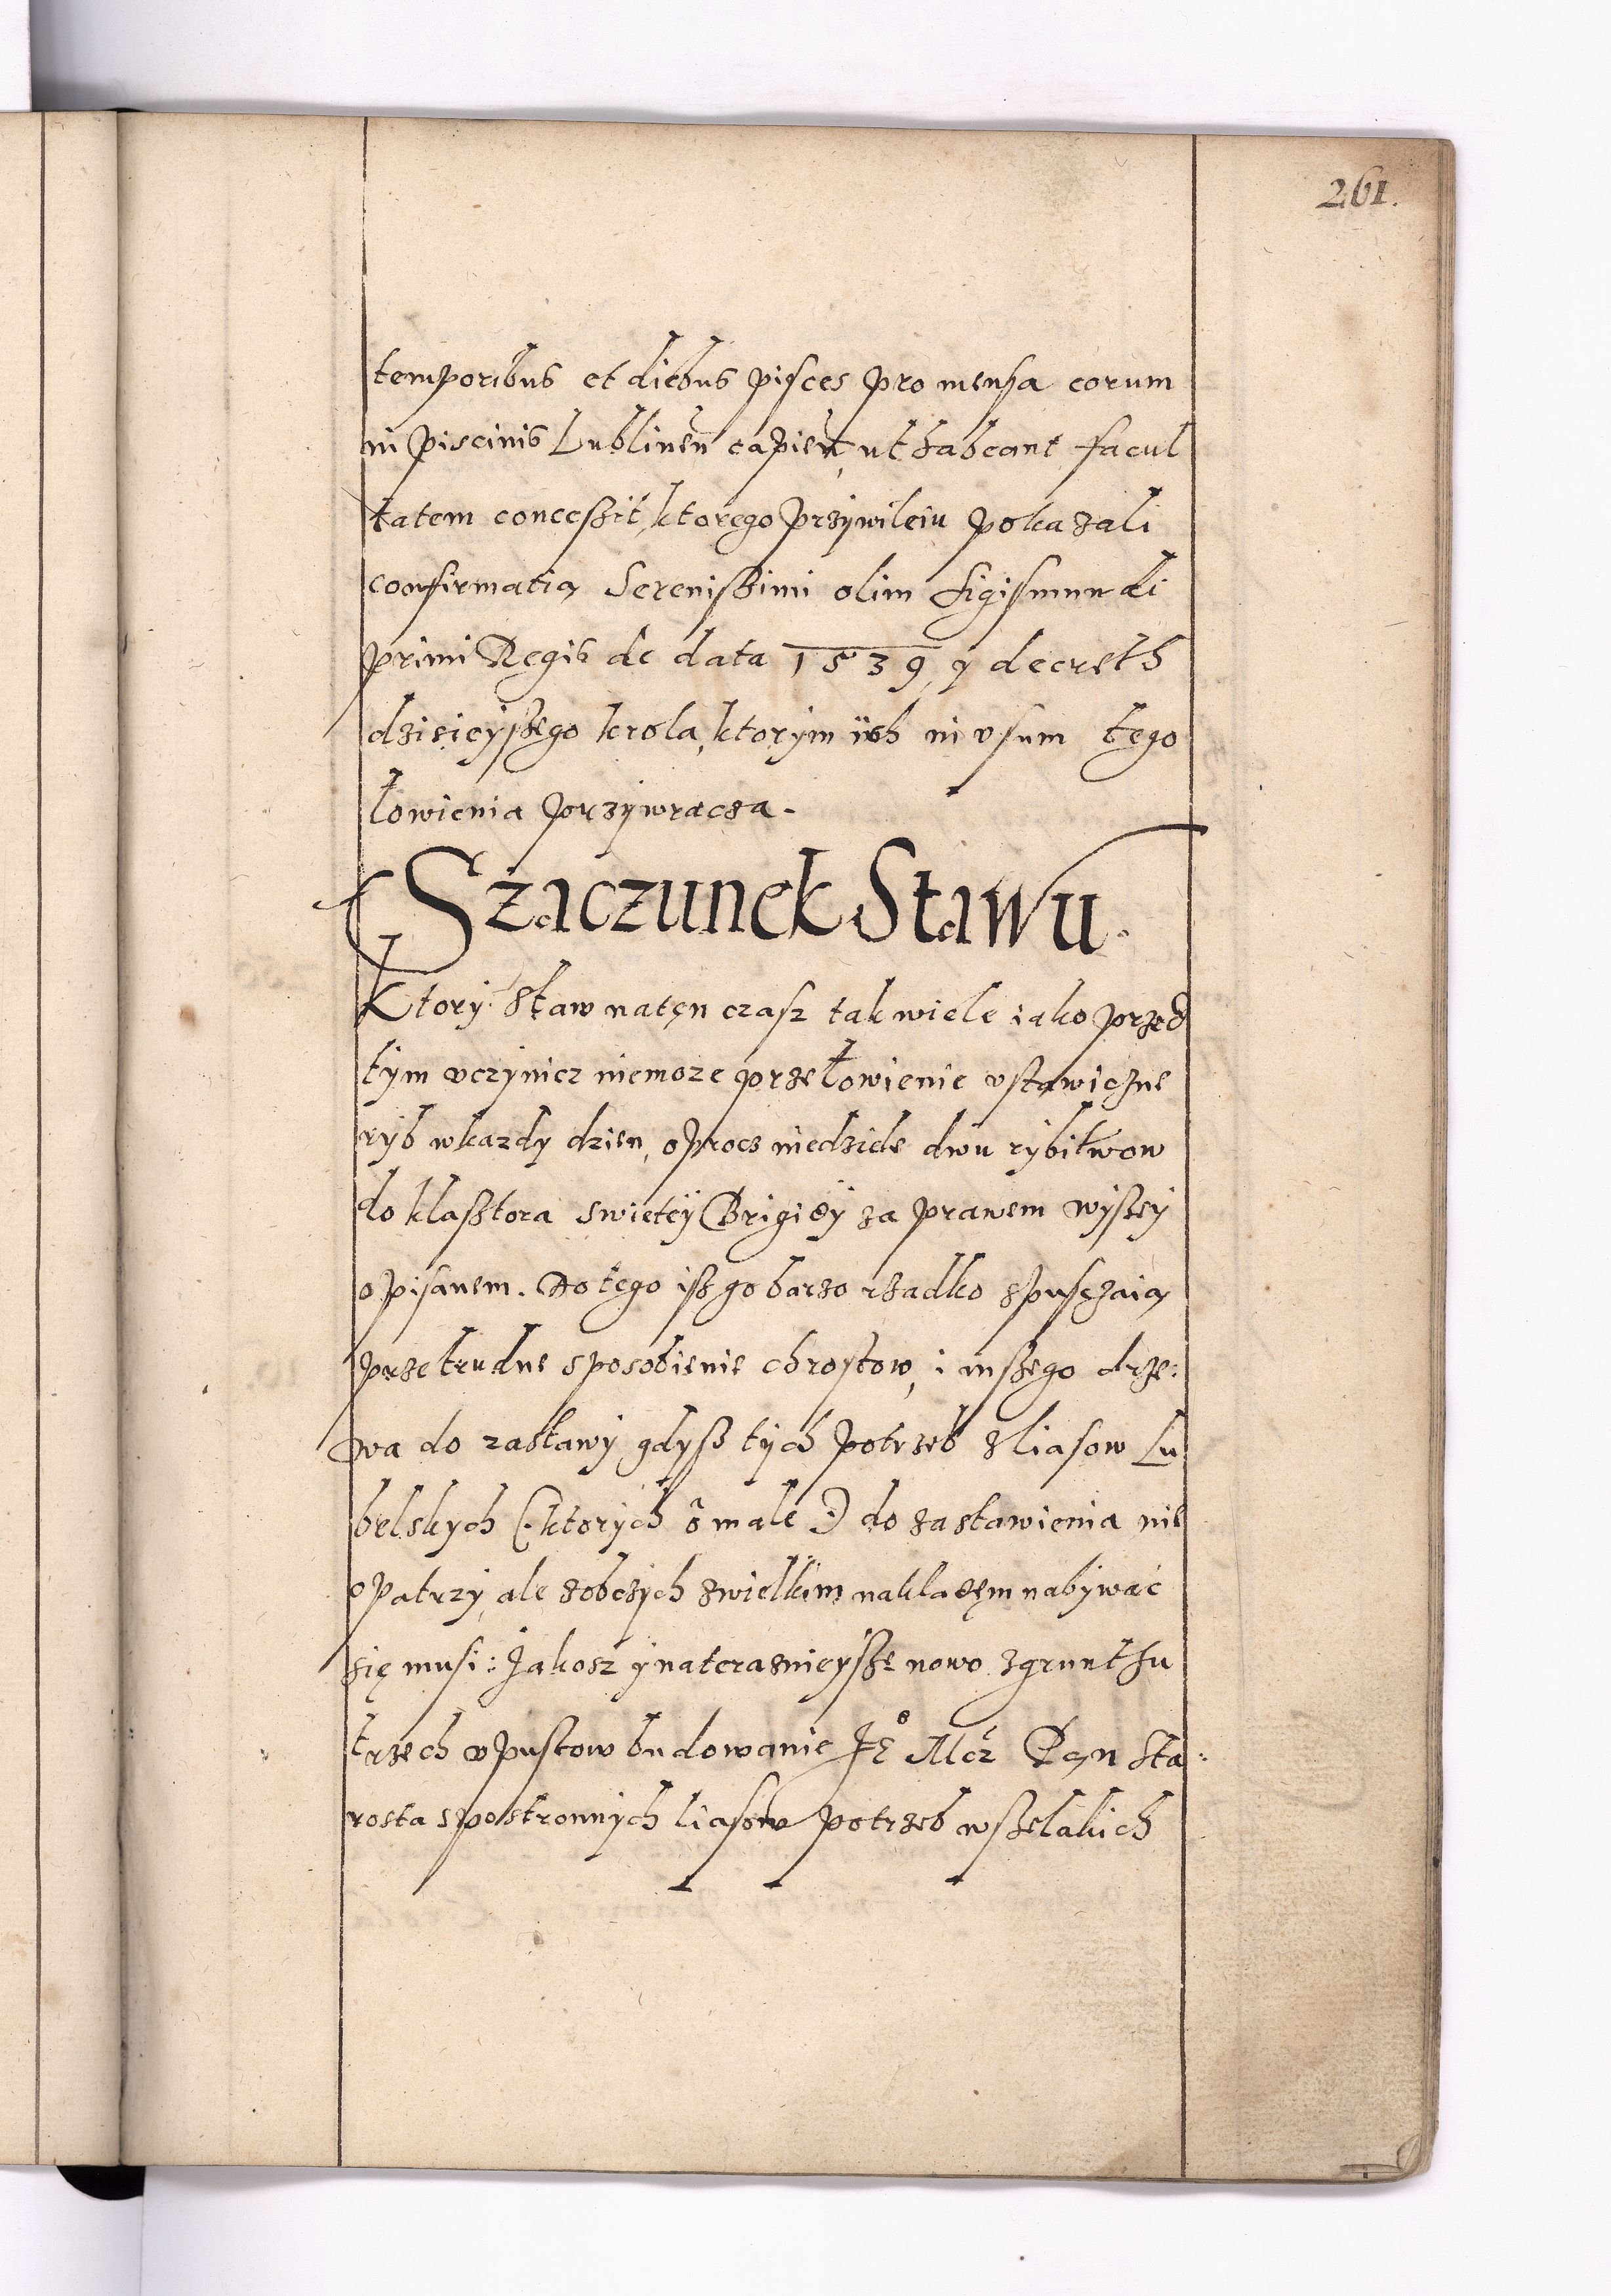 261.
temporibus et diebus pisces pro mensa eorum
in piscinis Lublinen capien, ut habeant facul
tatem concessit, ktorego przywileiu pokazali
confirmatią Serenissimi olim Sigismundi
primi Regis de data 1539, y decreth
dzisieyszego krola, ktorym ich in usum tego
łowienia przywracza.
Szaczunek Stawu.
Ktory staw naten czasz tak wiele iako przed
tym vczynicz niemoze przełowienie vstawiczne
ryb wkazdy dzien, oprocz niedziele dwu rybitwow
do klasztora swietey Brigidy za prawem wyszey
opisanem. Do tego isz go barzo rzadko spusczaią
przetrudne sposobienie chrostow, i inszego drze:
wa do zastawy gdysz tych potrzeb zliasow Lu
belskych (: ktorych o male :) do zastawienia nie
opatrzy, ale zobczych zwielkim nakladem nabywac
się musi: Jakosz y naterasnieysze nowo zgrunthu
trzech vpustow budowanie Je° Mcz Pan Sta:
rosta spostronnych liasow potrzeb wszelakich